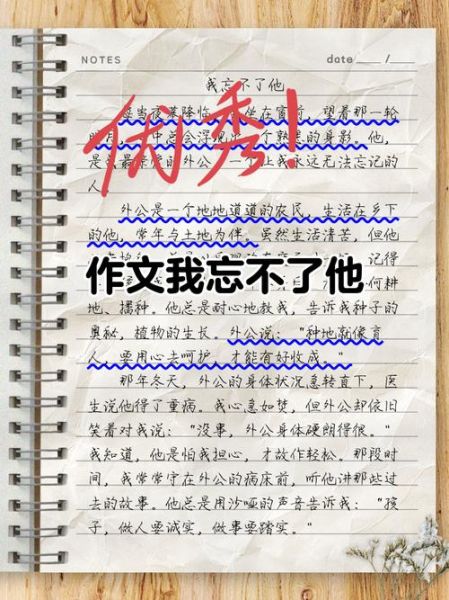 NOTES date ____ /____
我忘不了他
每当夜幕降临,坐在窗前,望着那一轮
中总会浮现出一个熟悉的身影。他,
是我最亲爱的外公,一个让我永远无法忘记的
人
优秀!
外公是一个地地道道的农民,生活在乡下
的他,常年与土地为伴。虽然生活清苦,但他
记得
作文我忘不了他
何耕
地、播种。他总是耐心地教我,告诉我种子的
奥秘,植物的生长。外公说:“种地就像育
人,要用心去呵护,才能有好收成。”
那年冬天,外公的身体状况急转直下,医
生说他得了重病。我心急如焚,但外公却依旧
笑着对我说:“没事,外公身体硬朗得很。”
我知道,他是怕我担心,才故作轻松。那段时
间,我常常守在外公的病床前,听他讲那些过
去的故事。他总是用沙哑的声音告诉我:“孩
子,做人要诚实,做事要踏实。”